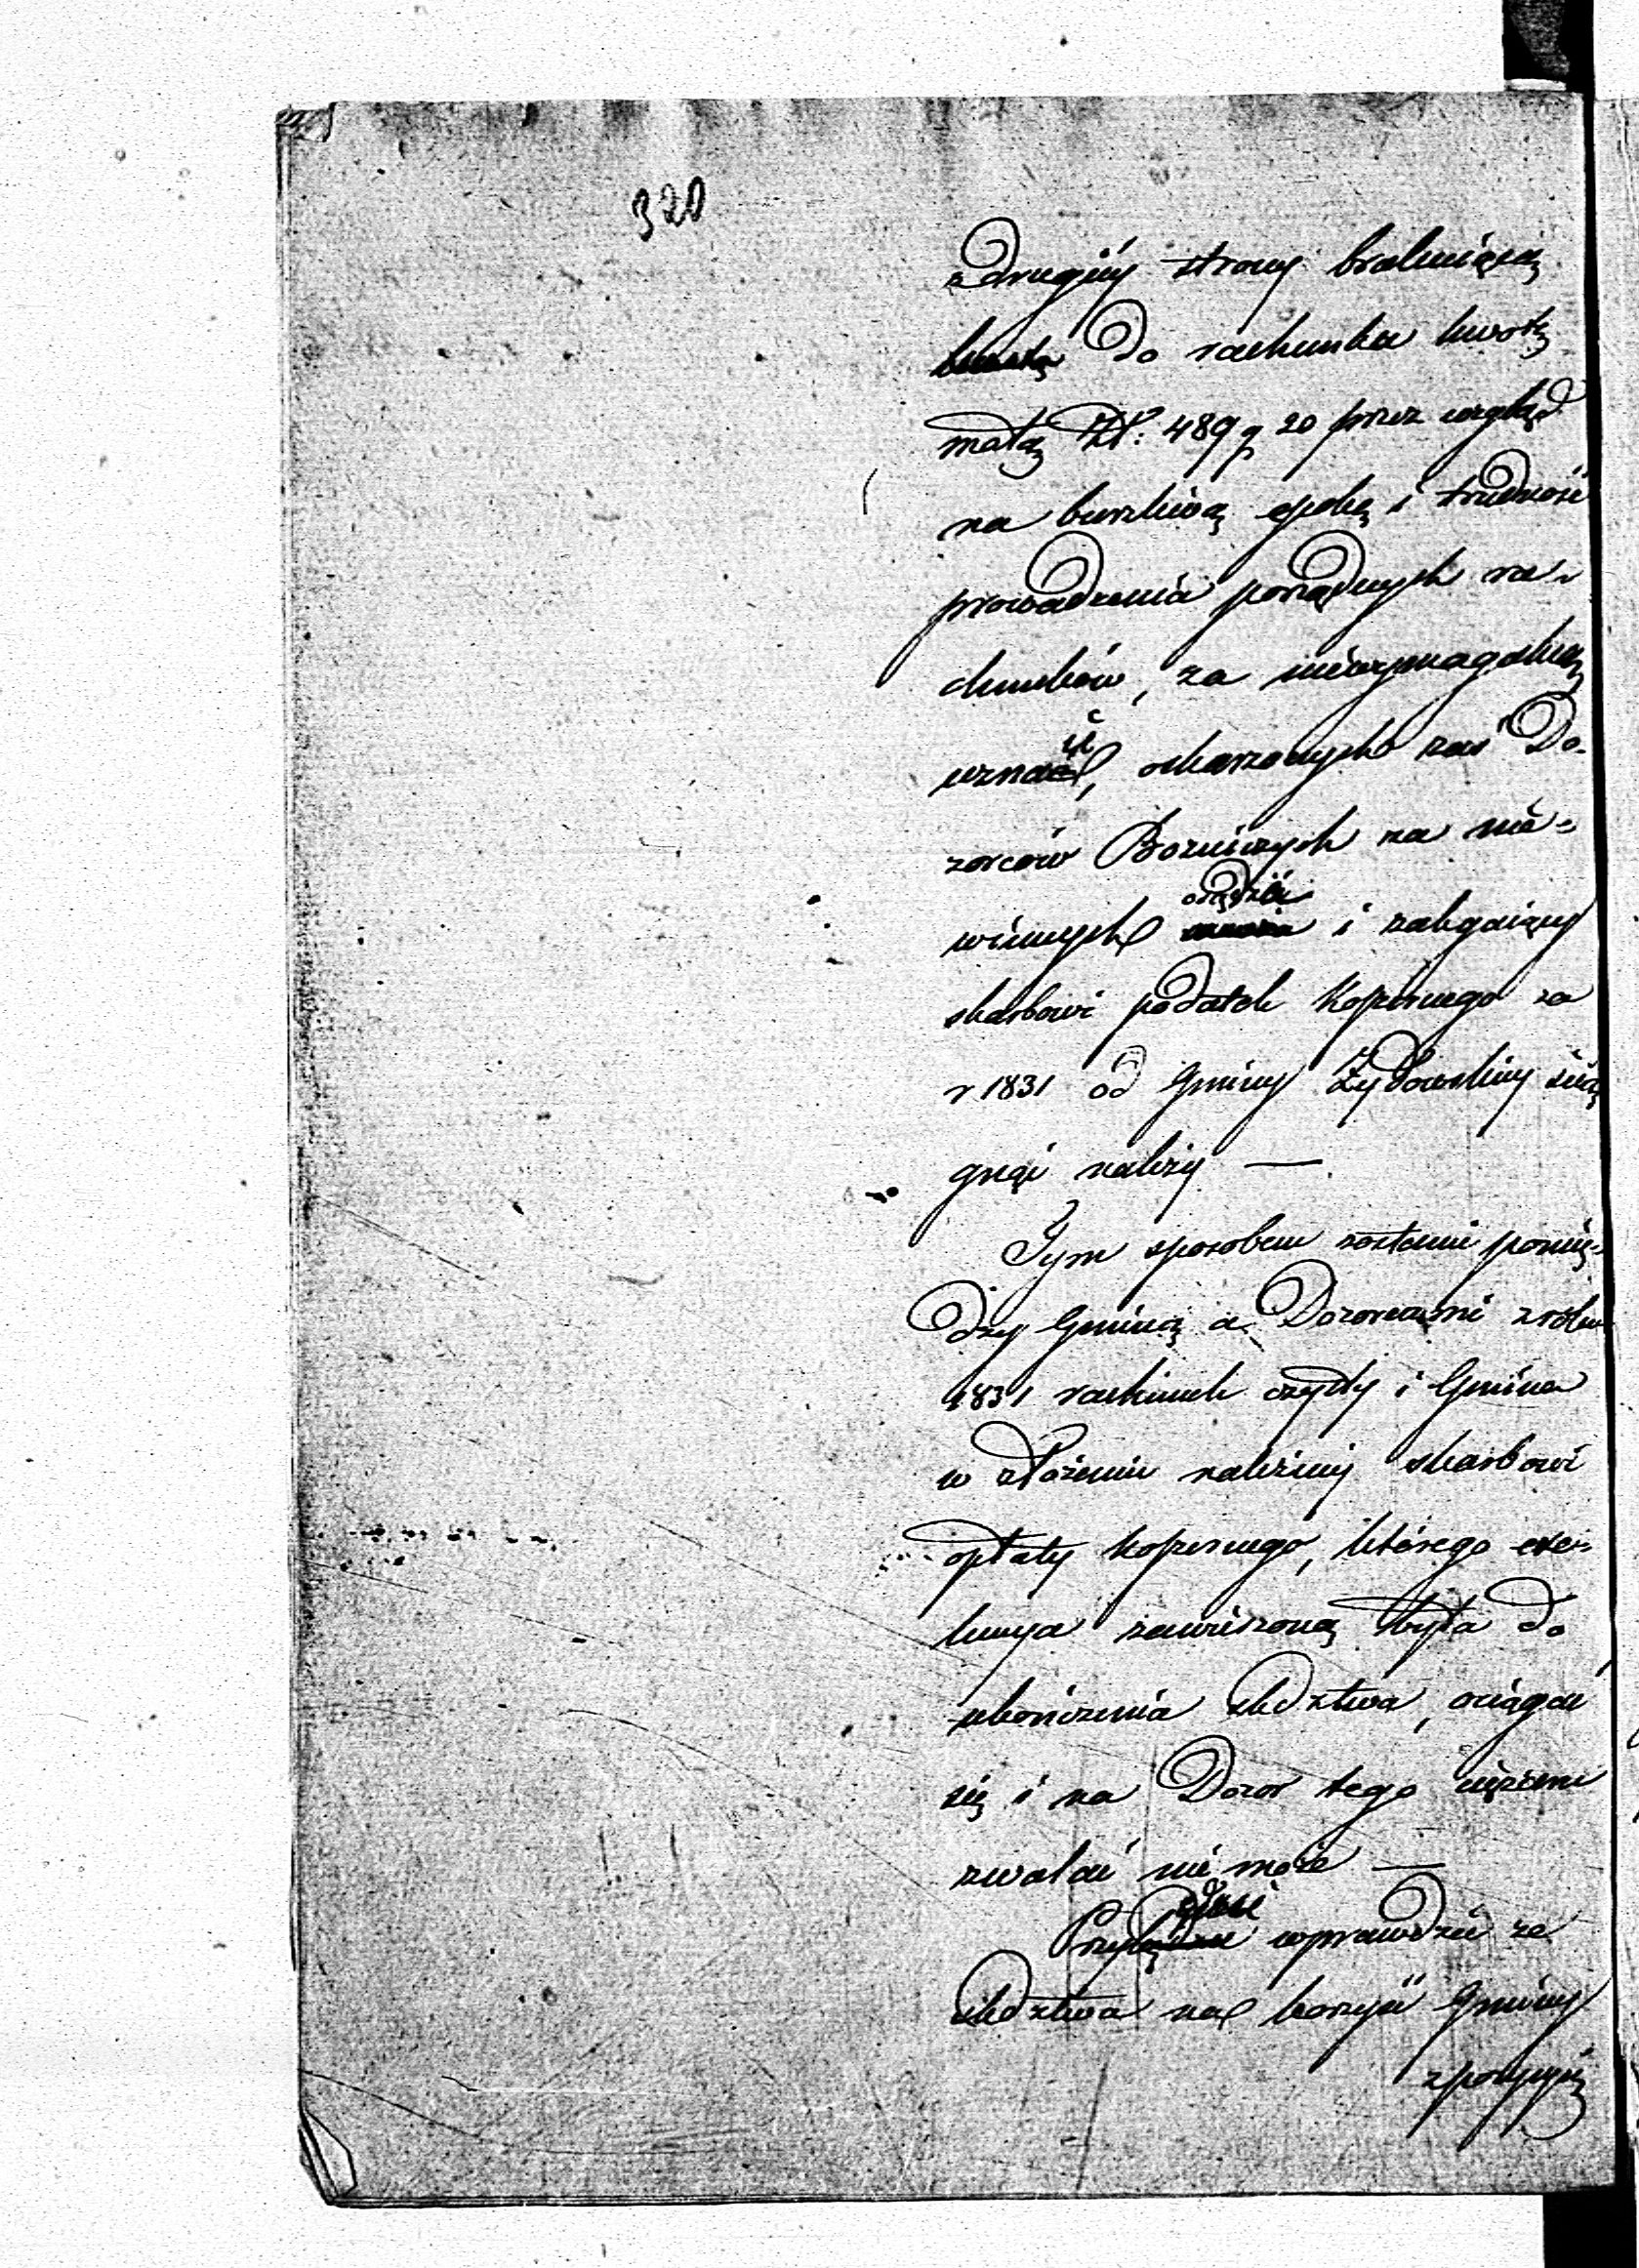 320
z drugiéy strony brakuiącą
do rachunku kwotę
małą Złt: 489 g 20 przez wzgląd
na burzliwą epokę i trudność
prowadzenia porządnych ra-
chunków, za niewymagalną
uznać, oskarzonych zaś Do-
zorców Bozniczych za nie-
winnych osądzić i zalegaiący
skarbowi podatek Koszernego za
r 1831 od Gminy Żydowskiey ścią
gnąć należy —
Tym sposobem zostanie pomię-
dzy Gminą a Dozorcami z roku
1831 rachunek czysty i Gmina
w złożeniu należney skarbowi
opłaty koszernego, którego exe-
kucya zawieszoną była do
ukończenia śledztwa, ociągać
się i na Dozor tego ciężaru
zwalać nie może —
wprawdzie ze
śledztwa na korzyść Gminy